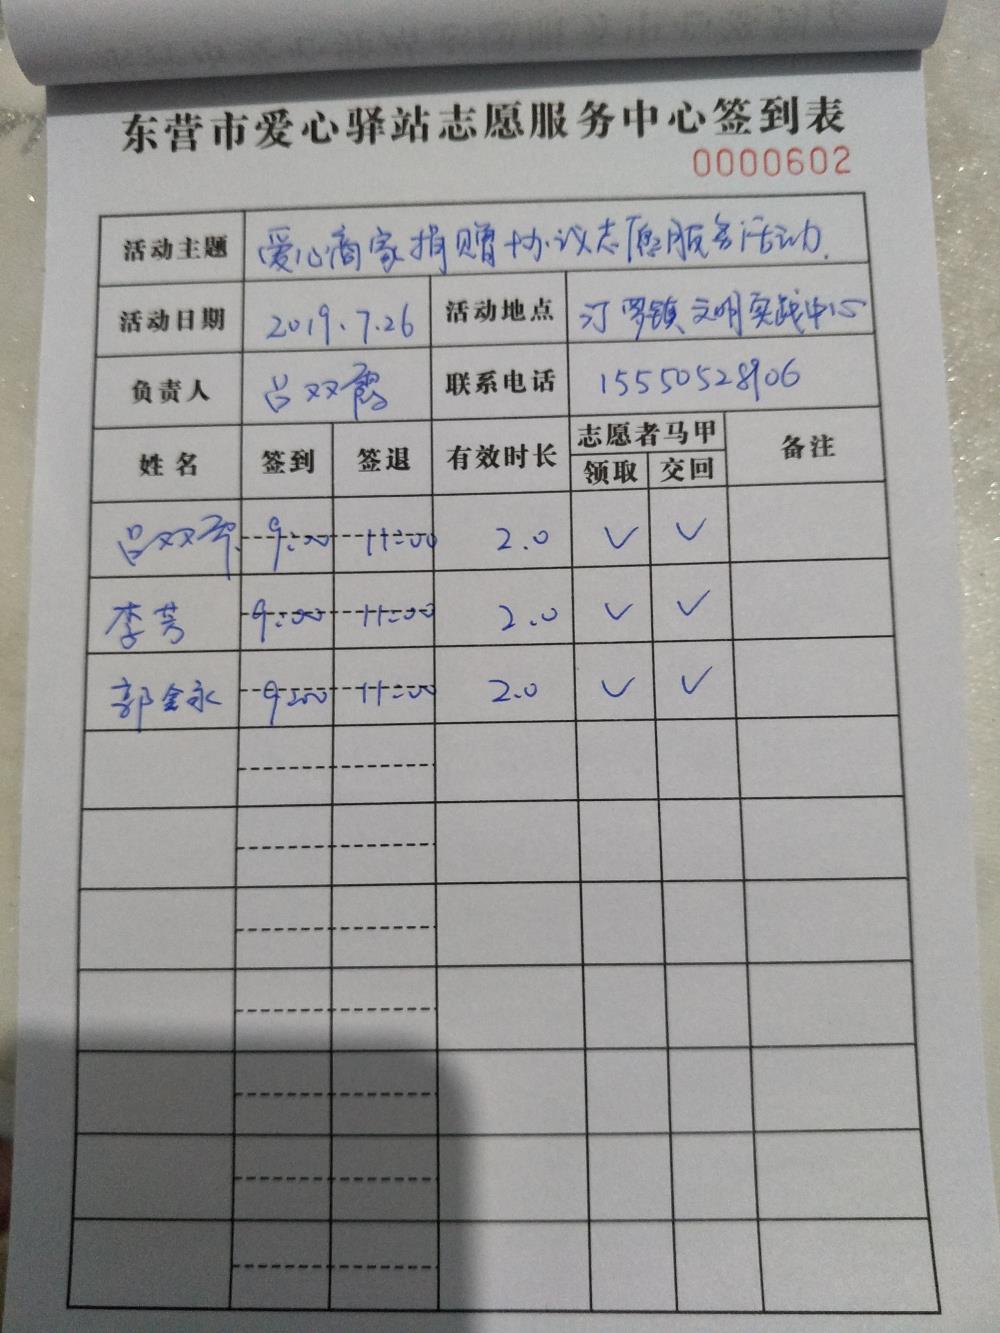 东营市爱心驿站志愿服务中心签到表
0000602
活动主题 爱心商家捐赠协议志愿服务活动.
活动日期 2019.7.26 活动地点 汀罗镇文明实践中心
负责人 吕双霞 联系电话 15550528906
姓名 签到 签退 有效时长 志愿者马甲 备注
领取 交回
吕双 9:00 11:00 2.0 ✓ ✓
李芳 9:00 11:00 2.0 ✓ ✓
郭金永 9:00 11:00 2.0 ✓ ✓